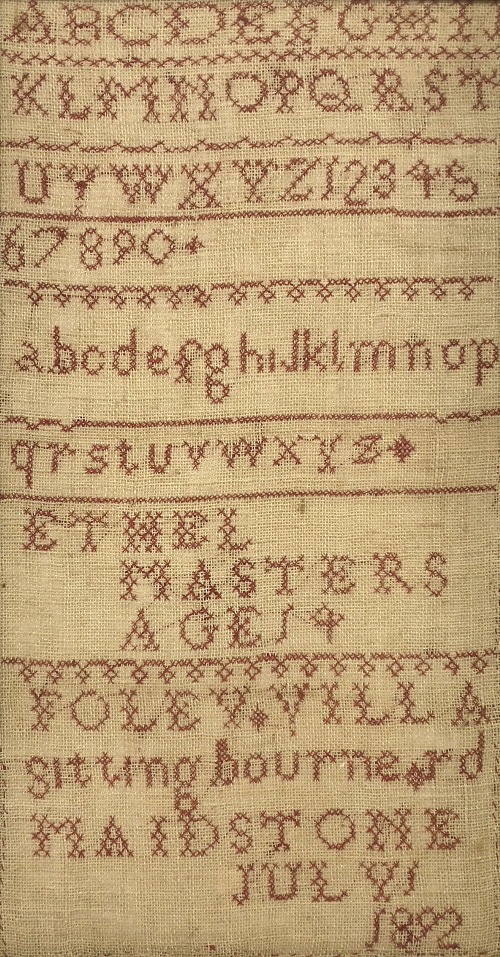 ABCDEFGHIJ
KLMNOPQRST
UVWXYZ12345
67890
abcdefghijklmnop
qrstuvwxyz
ETHEL
MASTERS
AGE 14
FOLEY VILLA
sittingbourne rd
MAIDSTONE
JULY 1
1892